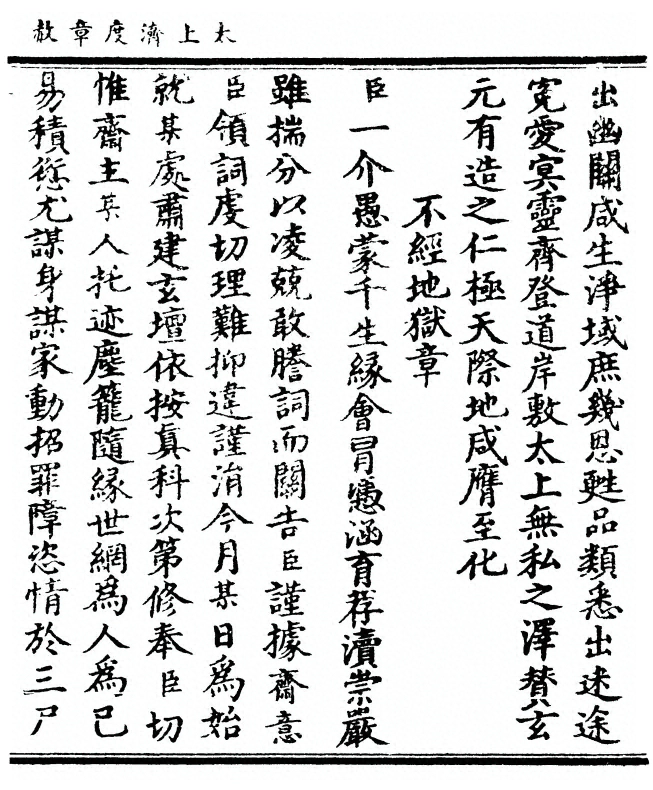 太上濟度章赦
出幽關咸生淨域庶幾恩甦品類悉出迷途
寃愛冥靈齊登道岸敷太上無私之澤賛玄
元有造之仁極天際地咸膺至化
不經地獄章
臣一介愚蒙千生緣會冒慿涵育荐瀆崇嚴
雖揣分以凌兢敢謄詞而關告臣謹據齋意
臣領詞虔切理難抑違謹涓今月某日為始
就某處肅建玄壇依按真科次第修奉臣切
惟齋主某人托迹塵籠隨緣世網為人為己
易積愆尤謀身謀家動招罪障恣情於三尸